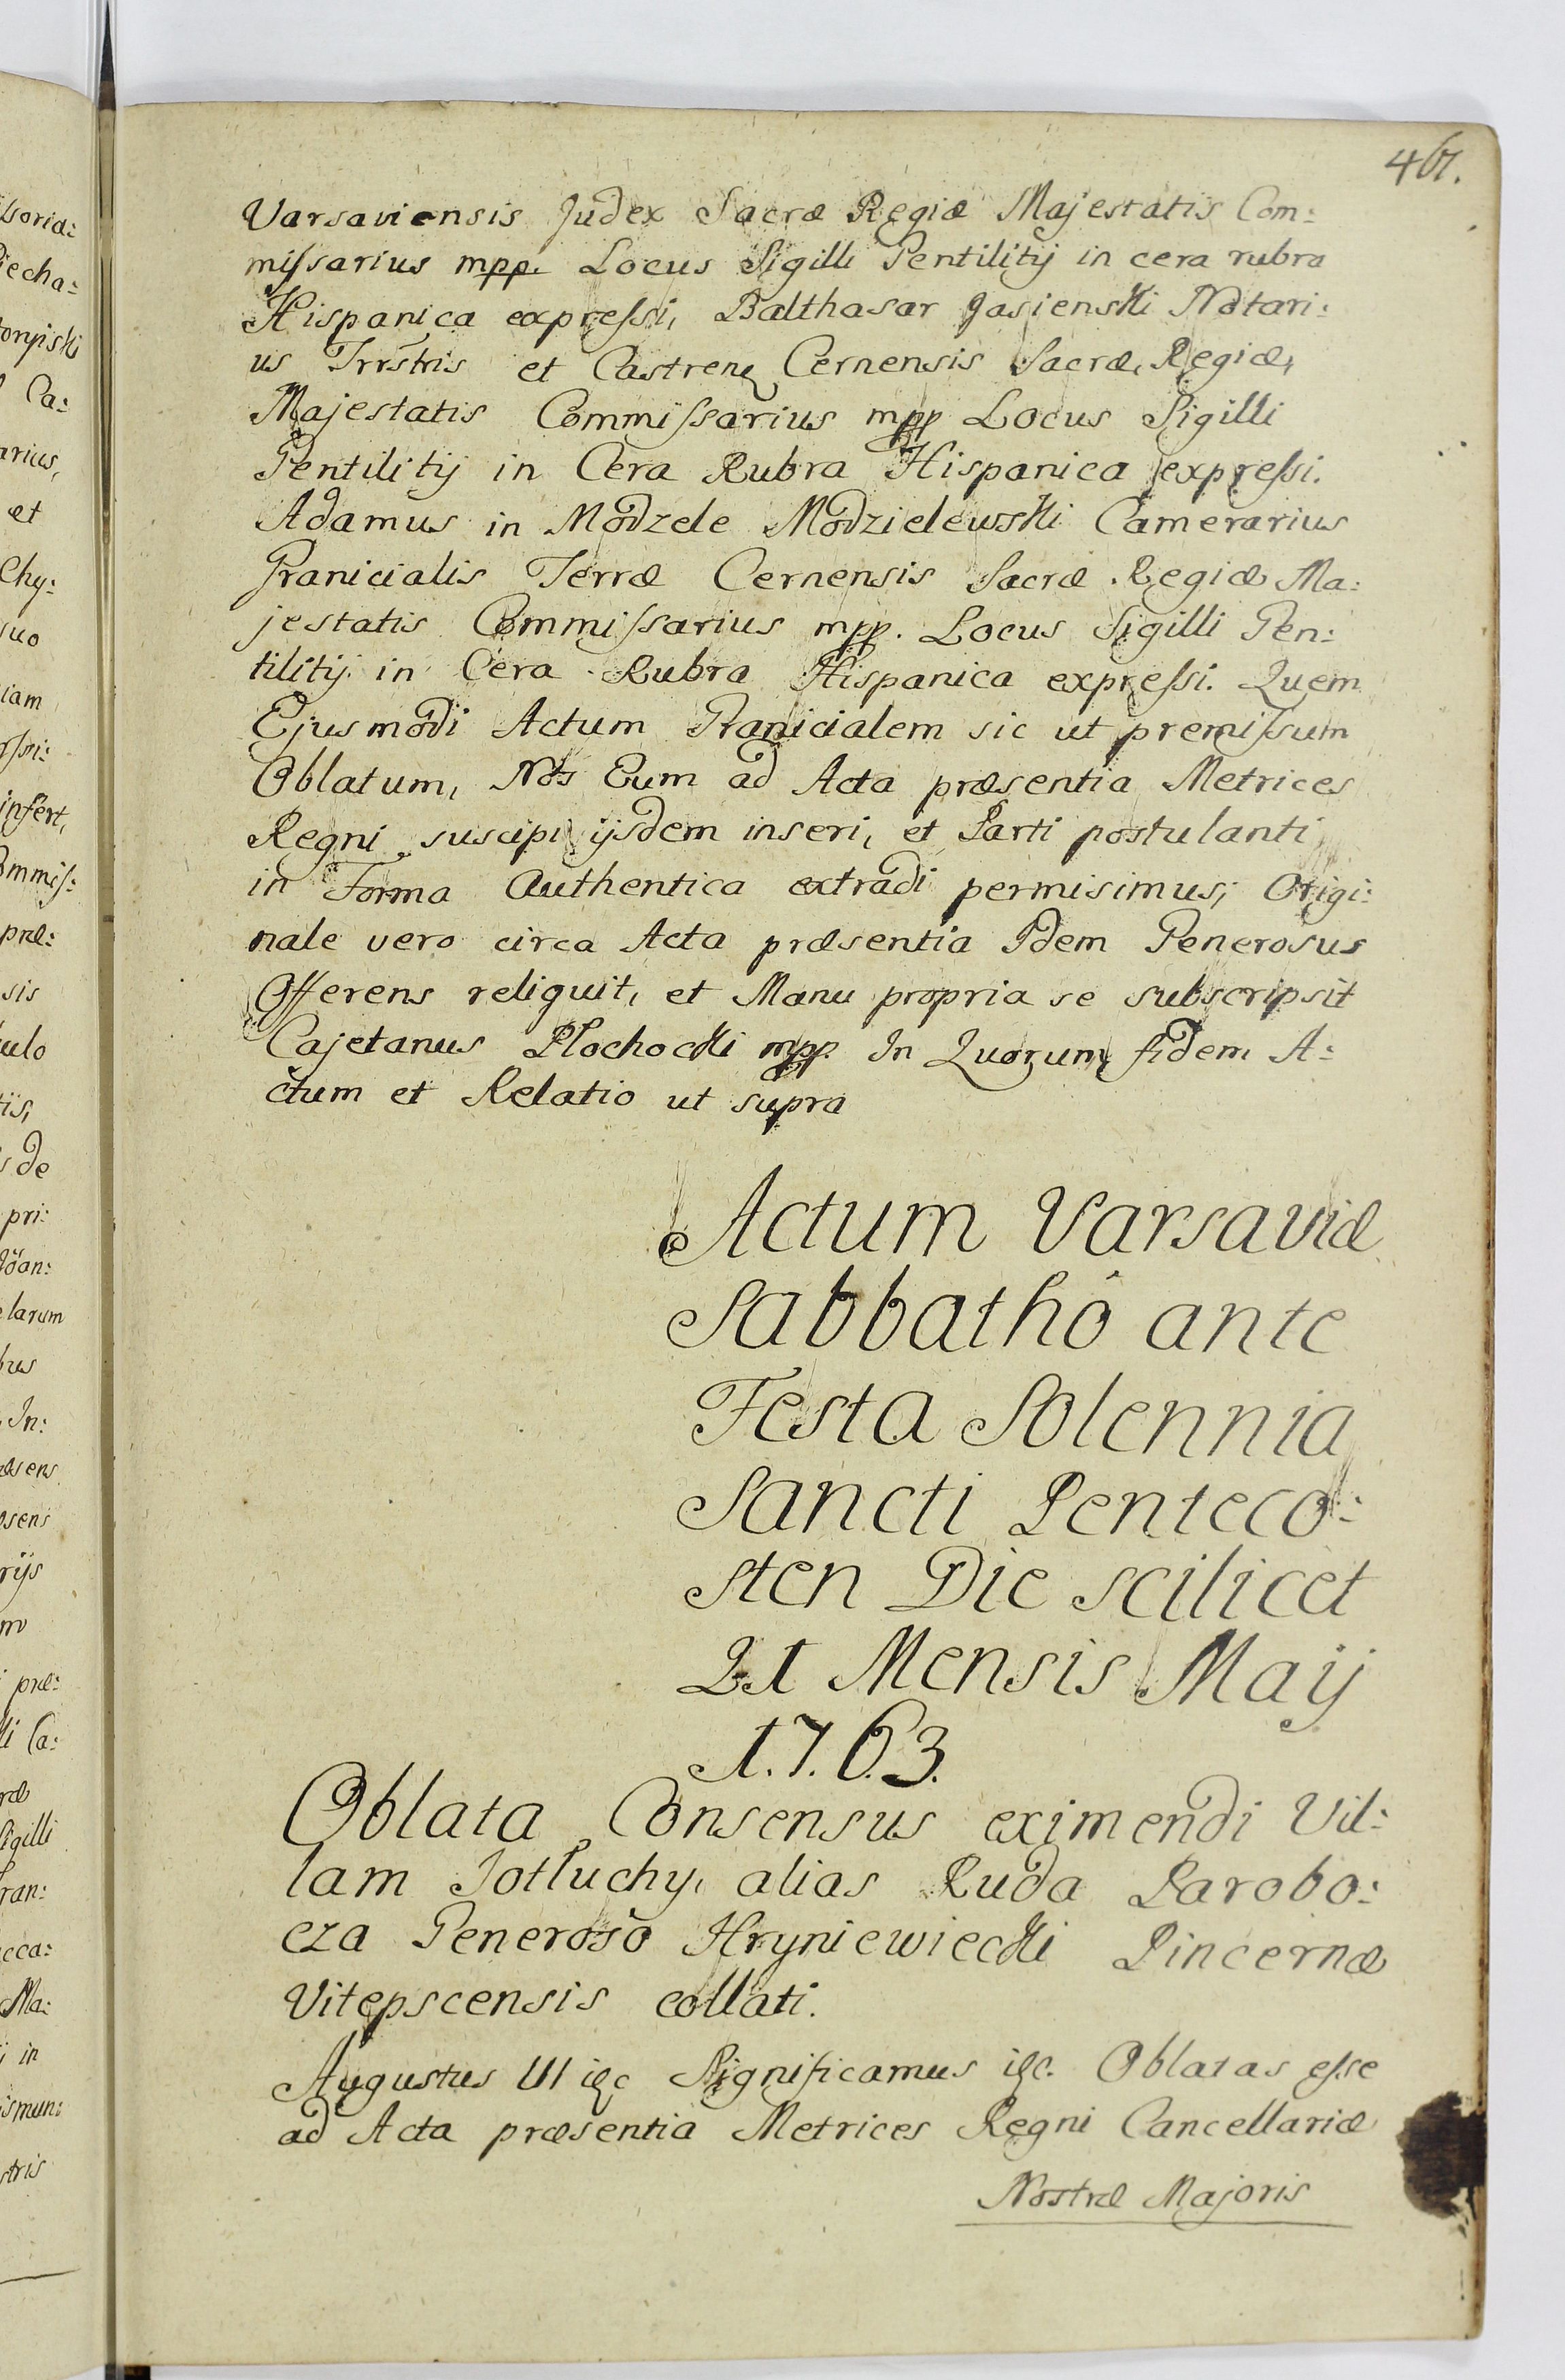 467.
Varsaviensis Judex Sacræ Regiæ Majestatis Com:
miſsarius mpp. Locus Sigilli Gentilitij in cera rubra
Hispanica expreſsi, Balthasar Jasienski Notari:
us Trrstris et Castrenq Cernensis Sacræ, Regiæ,
Majestatis Commiſsarius mpp Locus Sigilli
Gentilitij in Cera Rubra Hispanica expreſsi.
Adamus in Modzele Modzielewski Camerarius
Granicialis Terræ Cernensis Sacræ Regiæ Ma:
jestatis Commiſsarius mpp. Locus Sigilli Gen:
tilitij in Cera Rubra Hispanica expreſsi. Quem
Ejusmodi Actum Granicialem sic ut premiſsum
Oblatum, Nos Eum ad Acta præsentia Metrices
Regni suscipi ijsdem inseri, et Parti postulanti
in Forma Authentica extradi permisimus; Origi:
nale vero circa Acta præsentia Idem Generosus
Offerens reliquit, et Manu propria se subscripsit
Cajetanus Plochocki mpp. In Quorum fidem A:
ctum et Relatio ut supra
Actum Varsaviæ
Sabbathô ante
Festa Solennia
Sancti Penteco:
sten Die scilicet
21 Mensis Maij
1.7.6.3.
Oblata Consensus eximendi Vil:
lam Sotłuchy, alias Ruda Parobo:
cza Generoso Hryniewiecki Pincernæ
Vitepscensis collati.
Augustus III etc Significamus etc. Oblatas eſse
ad Acta præsentia Metrices Regni Cancellariæ
Nostræ Majoris